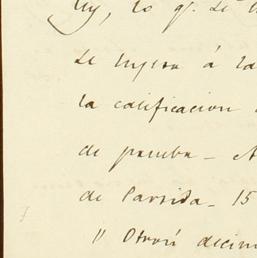 ley, lo q.e se
se
la calificacion
de prueba -
de Partida - 15
" Otrosi decim